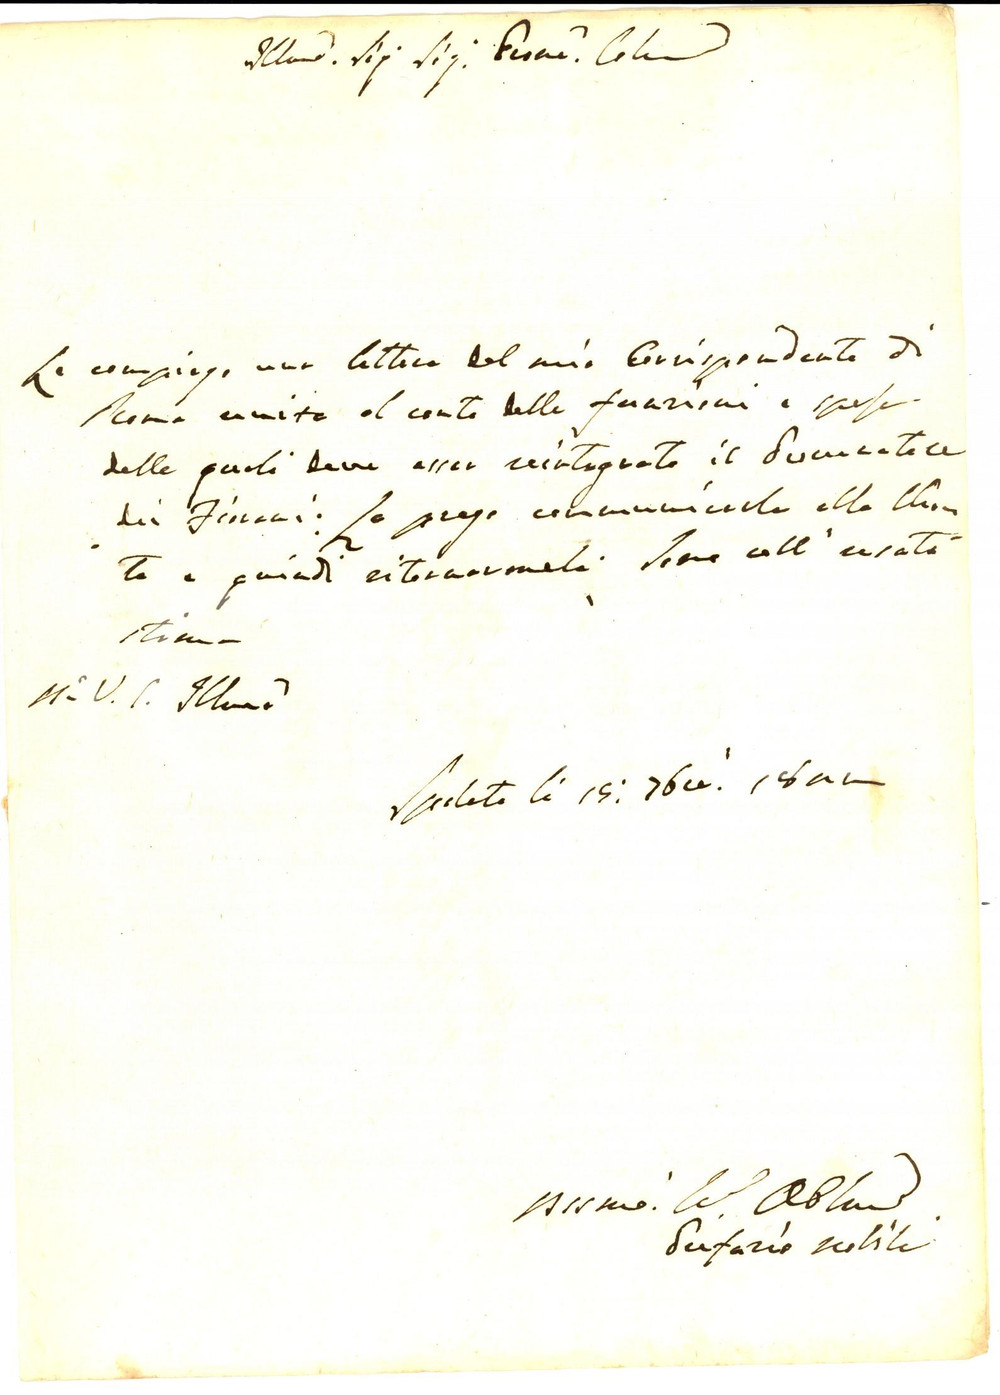 Illmo. Sig. Sig. Prone. Colmo
Le compiego una lettera del mio Corrispondente di
Roma unita al conto delle funzioni e spese
delle quali deve esser reintegrato il Procuratore
dei Finoni: La prego comunicarla alla Clien
te e quindi ritornarmela. Sono coll' usata
stima
Di V. S. Illma
Spoleto li 15: 7bre.
Dmo. Obblmo
Porfirio nobili